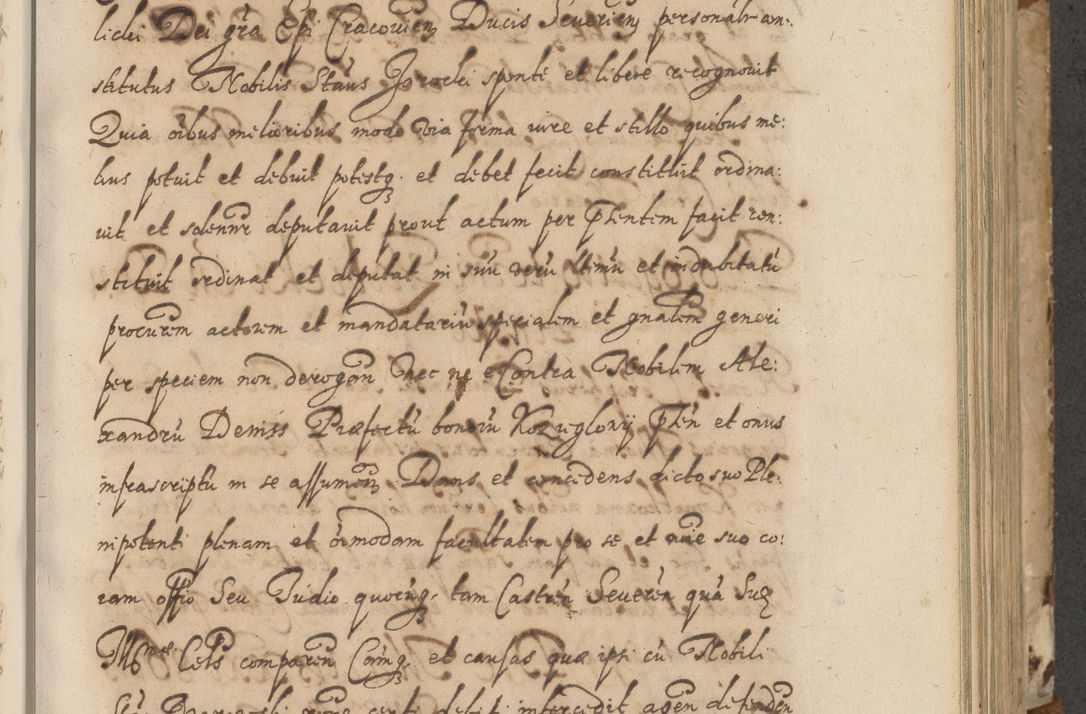 licei Dei gra Epi Cracovien Ducis Severien personalr con:
stitutus Nobilis Staus sponte et libere recognovit
Quia oibus melioribus modo via forma iure et stillo quibus me:
lius potuit et debuit potestq. et debet fecit constituit ordina:
vit et solennr deputavit prout actum per Pntem facit con:
stituit ordinat et deputat in suu veru ltimu et indubitatu
procurem actorem et mandatariu specialem et gnalem generi
per speciem non derogan nec e Contra Nobilem Ale:
xandru Deniss Præfectu bonoru Kozuglowy Pntn et onus
infrascriptu in se assumen Dans et concedens dicto suo Ple:
nipotenti plenam et oimodam facultatem pro se et noie suo co:
ram offio Seu Iudio quocuq. tam Castren Severien qua Suæ
Cels comparen Coing et causas quæ ipsi cu Nobili
certi debiti intercedit agen defenden